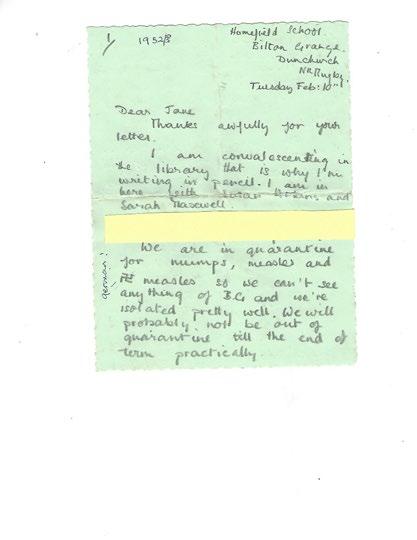 1/
1952/3
Homefield School.
Bilton Grange.
Dunchurch
Nr Rugby.
Tuesday Feb: 10th
Dear Jane
Thanks awfully for your
letter.
I am convalescenting in
the library that is why I'm
writing in pencil. I am in
here with Susan and
Sarah Maxwell.
We are in quarantine
for mumps, measles and
german!
measles so we can't see
anything of B.G and we're
isolated pretty well. We will
probably not be out of
quarantine till the end of
term practically.